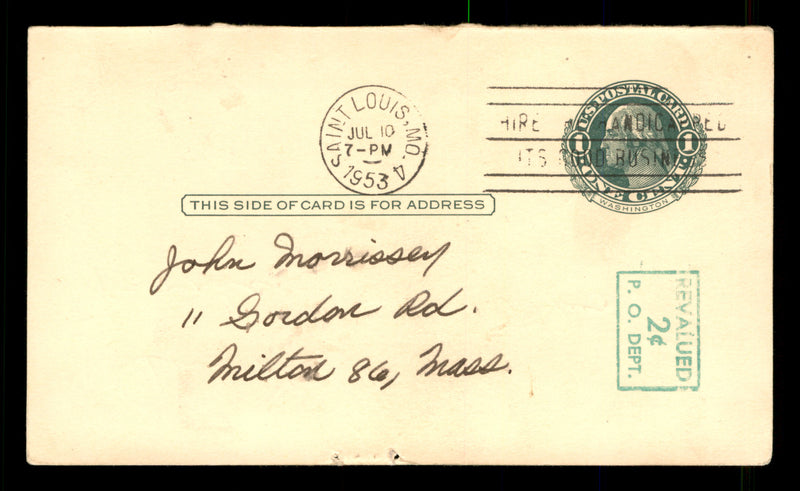 SAINT LOUIS, MO. 4
JUL 10
7-PM
1953
HIRE HANDICAPPED
ITS GOOD BUSINESS
U.S. POSTAL CARD
1 1
ONE CENT
WASHINGTON
THIS SIDE OF CARD IS FOR ADDRESS
John Morrissey
11 Gordon Rd.
Milton 86, Mass.
REVALUED
2¢
P. O. DEPT.